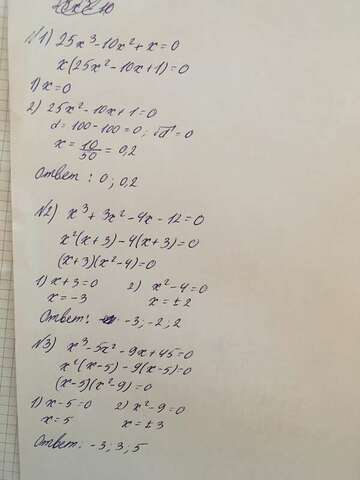 №1) 25x³-10x²+x=0
x(25x²-10x+1)=0
1) x=0
2) 25x²-10x+1=0
d=100-100=0; √d=0
x=10/50=0,2
Ответ: 0; 0,2
№2) x³+3x²-4x-12=0
x²(x+3)-4(x+3)=0
(x+3)(x²-4)=0
1) x+3=0 2) x²-4=0
x=-3 x=±2
Ответ: -3; -2; 2
№3) x³-5x²-9x+45=0
x²(x-5)-9(x-5)=0
(x-5)(x²-9)=0
1) x-5=0 2) x²-9=0
x=5 x=±3
Ответ: -3; 3; 5